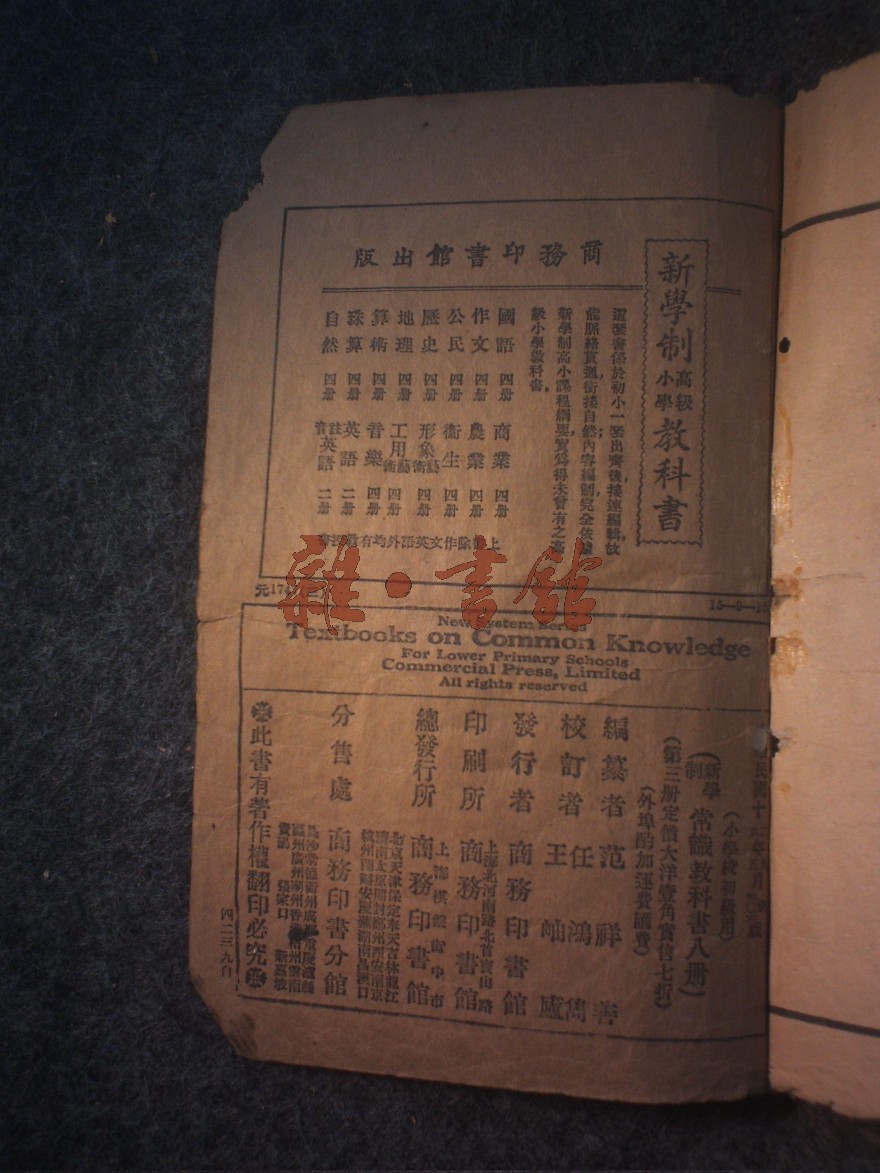 新學制高級小學教科書
商務印書館出版
這套書係於初小一套出齊後,接連編輯,故
能脈絡貫通,銜接自然;內容編制,完全依據
新學制高小課程綱要,實為得未曾有之高
級小學教科書。
國語 四册
作文 四册
公民 四册
歷史 四册
地理 四册
算術 四册
珠算 四册
自然 四册
商業 四册
農業 四册
衛生 四册
形象藝術 四册
工用藝術 四册
音樂 四册
英語 二册
註音英語 二册
元174
New System Series
Textbooks on Common Knowledge
For Lower Primary Schools
Commercial Press, Limited
All rights reserved
(小學校初級用)
(新學制)常識教科書八册)
(第三册定價大洋壹角實售七折)
(外埠酌加運費匯費)
編纂者 范祥善
校訂者 任鴻雋 王岫廬
發行者 商務印書館
印刷所 上海北河南路北首寶山路 商務印書館
總發行所 上海棋盤街中市 商務印書館
分售處 商務印書分館
北京天津保定奉天吉林龍江
濟南太原開封鄭州西安南京
張家口 新嘉坡
此書有著作權翻印必究
四二三九自
雜·書館